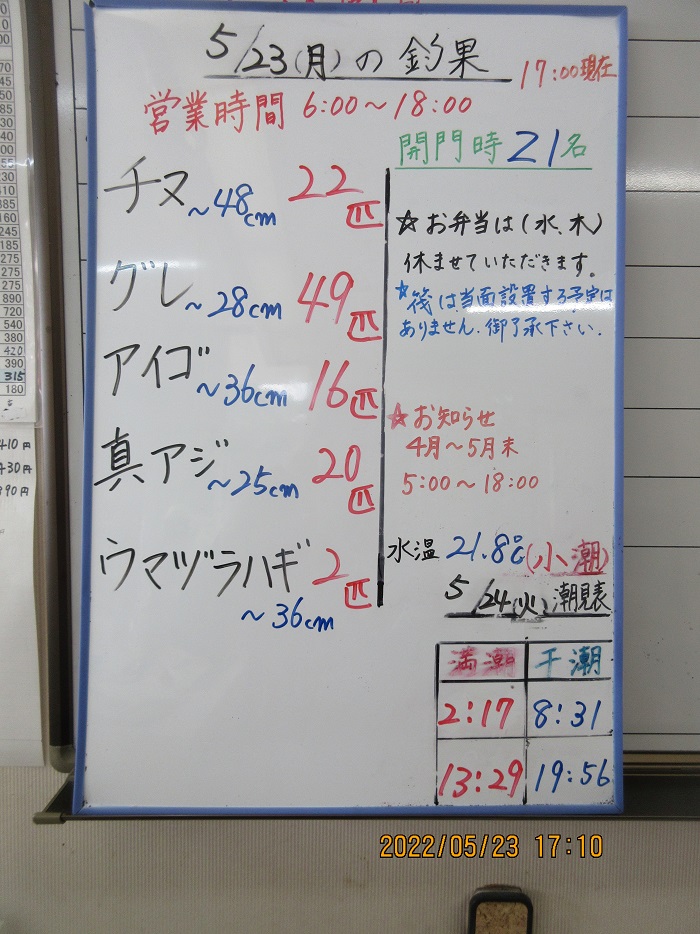 5/23(月)の釣果
17:00現在
営業時間 6:00～18:00
開門時 21名
チヌ ～48cm 22匹
グレ ～28cm 49匹
アイゴ ～36cm 16匹
真アジ ～25cm 20匹
ウマヅラハギ 2匹
～36cm
☆お弁当は(水、木)
休ませていただきます。
☆筏は当面設置する予定は
ありません.御了承下さい.
☆お知らせ
4月～5月末
5:00～18:00
水温 21.8℃(小潮)
5/24(火)潮見表
満潮 干潮
2:17 8:31
13:29 19:56
410円
430円
2022/05/23 17:10